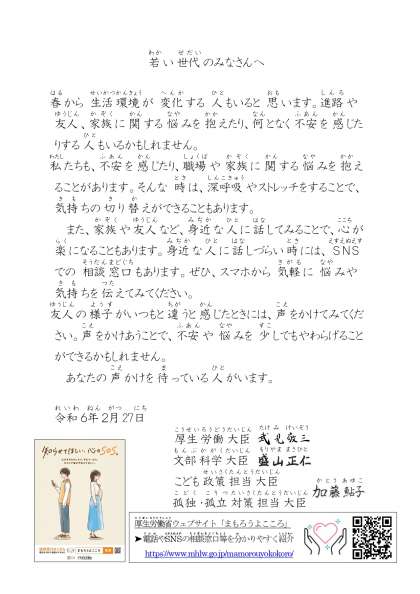 若い世代のみなさんへ
春から生活環境が変化する人もいると思います。進路や
友人、家族に関する悩みを抱えたり、何となく不安を感じた
りする人もいるかもしれません。
私たちも、不安を感じたり、職場や家族に関する悩みを抱え
ることがあります。そんな時は、深呼吸やストレッチをすることで、
気持ちの切り替えができることもあります。
また、家族や友人など、身近な人に話してみることで、心が
楽になることもあります。身近な人に話しづらい時には、SNS
での相談窓口もあります。ぜひ、スマホから気軽に悩みや
気持ちを伝えてみてください。
友人の様子がいつもと違うと感じたときには、声をかけてみてくだ
さい。声をかけあうことで、不安や悩みを少しでもやわらげること
ができるかもしれません。
あなたの声かけを待っている人がいます。
令和6年2月27日
厚生労働大臣 武見敬三
文部科学大臣 盛山正仁
こども政策担当大臣
孤独・孤立対策担当大臣
加藤鮎子
知らせてほしい、心のSOS。
厚生労働省ウェブサイト「まもろうよこころ」
➤電話やSNSの相談窓口等を分かりやすく紹介
https://www.mhlw.go.jp/mamorouyokokoro/